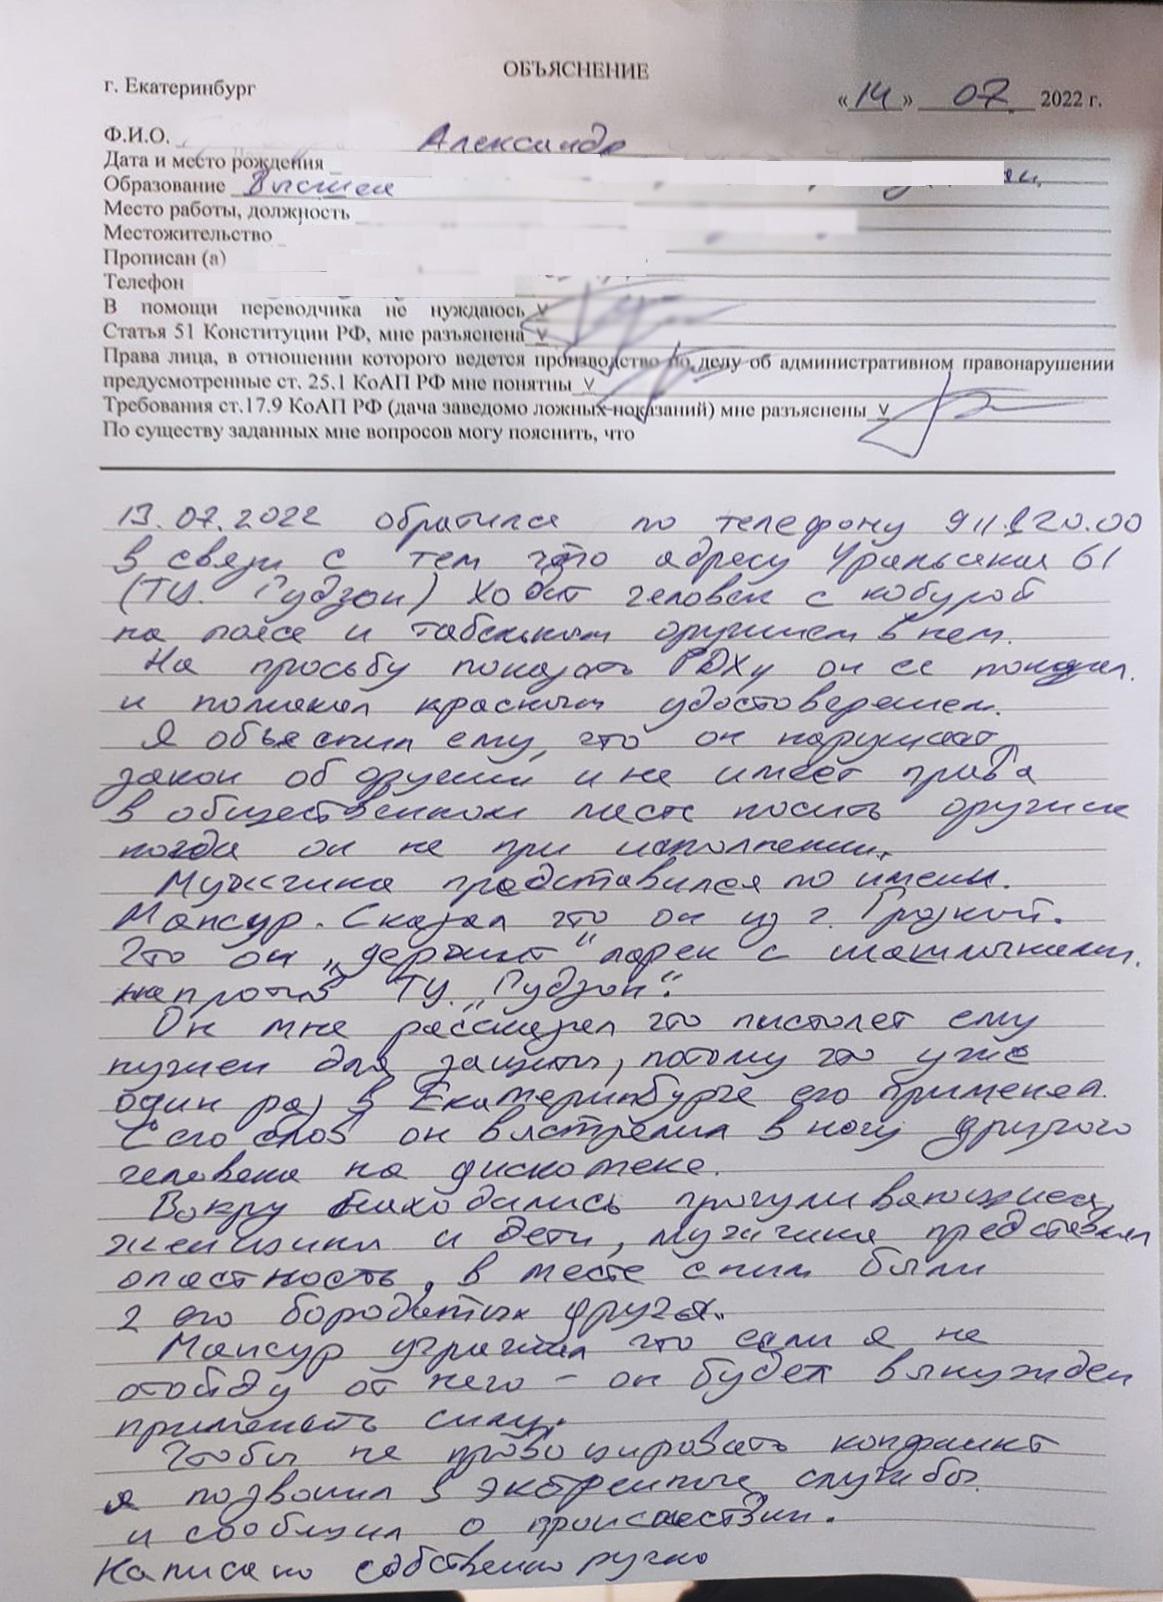 ОБЪЯСНЕНИЕ
г. Екатеринбург
«14» 07 2022 г.
Ф.И.О. Александр
Дата и место рождения
Образование Высшее
Место работы, должность
Местожительство
Прописан (а)
Телефон
В помощи переводчика не нуждаюсь v
Статья 51 Конституции РФ, мне разъяснена v
Права лица, в отношении которого ведется производство по делу об административном правонарушении
предусмотренные ст. 25.1 КоАП РФ мне понятны v
Требования ст.17.9 КоАП РФ (дача заведомо ложных показаний) мне разъяснены v
По существу заданных мне вопросов могу пояснить, что
13.07.2022 обратился по телефону
в связи с тем что по адресу Уральская 61
(ТЦ. Гудзон) Ходит человек с кобурой
на поясе и табельным оружием в нем.
На просьбу показать РОХу он ее показал.
и помахал красным удостоверением.
Я объяснил ему, что он нарушает
закон об оружии и не имеет права
в общественном месте носить оружие
когда он не при исполнении.
Мужчина представился по имени.
Мансур. Сказал что он из г. Грозный.
Что он „держит" ларек с шашлычками.
напротив ТЦ. „Гудзон".
Он мне рассказал что пистолет ему
нужен для защиты, потому что уже
один раз в Екатеринбурге его применял.
С его слов он выстрелил в ногу другого
человека на дискотеке.
Вокруг находились прогуливающиеся
женщины и дети, мужчина представлял
опастность, в месте с ним были
2 его бородатых друга.
Мансур угрожал что если я не
отойду от него - он будет вынужден
применять силу.
Чтобы не провоцировать конфликт
я позвонил в экстренные службы.
и сообщил о происшествии.
Написано собственно ручно